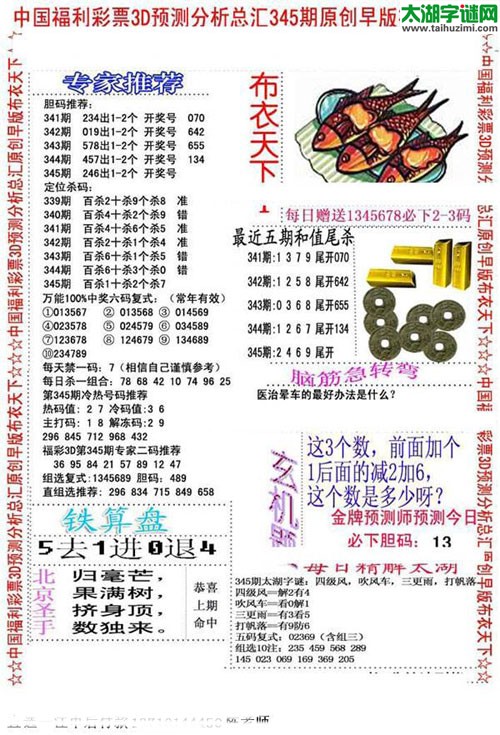 太湖字谜网
www.taihuzimi.com
中国福利彩票3D预测分析总汇345期原创早版
☆☆中国福利彩票3D预测分析总汇原创早版布衣天下☆☆☆中国福利彩票3D预测分析总汇原创早版布衣天下
专家推荐
胆码推荐:
341期 234出1-2个 开奖号 070
342期 019出1-2个 开奖号 642
343期 578出1-2个 开奖号 655
344期 457出1-2个 开奖号 134
345期 246出1-2个 开奖号
定位杀码:
339期 百杀2十杀9个杀8 准
340期 百杀4十杀2个杀9 错
341期 百杀4十杀3个杀1 错
342期 百杀6十杀1个杀7 准
343期 百杀6十杀4个杀9 错
344期 百杀6十杀3个杀0 错
345期 百杀1十杀2个杀7
万能100%中奖六码复式: (常年有效)
①013567 ②013568 ③014569
④023578 ⑤024579 ⑥034589
⑦123678 ⑧124679 ⑨135689
⑩234789
每天禁一码: 7 (相信自己谨慎参考)
每日杀一组合: 78 68 42 10 74 96 25
第345期冷热号码推荐
热码值: 2 7 冷码值:3 6
主打码: 1 8 解冻码:2 9
296 845 712 968 432
福彩3D第345期专家二码推荐
36 95 84 21 57 89 12 47
组选复式:1345689 胆码: 489
直组选推荐: 296 834 715 849 658
铁算盘
5去1进0退4
北京圣手
归毫芒,
果满树,
挤身顶,
数独来。
恭喜
上期
命中
布衣天下
每日赠送1345678必下2-3码
最近五期和值尾杀
341期:1 3 7 9 尾开070
342期:1 2 5 8 尾开642
343期:0 3 6 8 尾开655
344期:1 2 6 7 尾开134
345期:2 4 6 9 尾开
脑筋急转弯
医治晕车的最好办法是什么?
玄机
这3个数,前面加个
1后面的减2加6,
这个数是多少呀?
金牌预测师预测今日
必下胆码: 13
每日精解太湖
345期太湖字谜: 四级风,吹风车,三更雨,打帆落
四级风==解2有4
吹风车==看0解1
三更雨==有3看5
打帆落==有9防6
五码复式: 02369 (含组三)
组选10注: 235 459 568 289
145 023 069 169 369 205